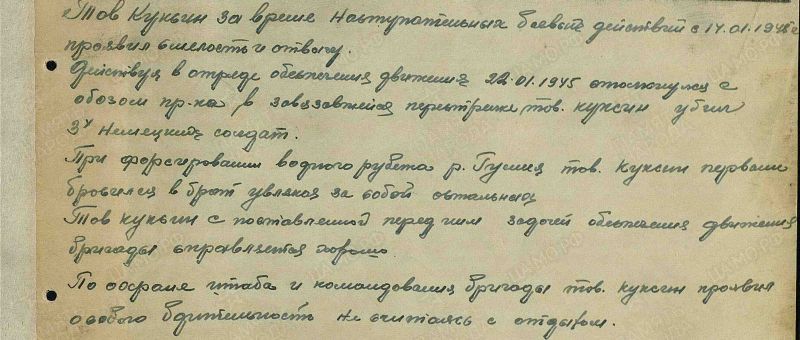 Тов Куксин за время наступательных боевых действий с 14.01.1945 г
проявил смелость и отвагу.
Действуя в отряде обеспечения движения 22.01.1945 столкнулся с
обозом пр-ка, в завязавшейся перестрелке тов. Куксин убил
3х немецких солдат.
При форсировании водного рубежа р. тов. Куксин первым
бросился в брод увлекая за собой остальных
Тов Куксин с поставленной перед ним задачей обеспечения движения
бригады справляется хорошо
По охране штаба и командования бригады тов. Куксин проявил
особого бдительность не считаясь с отдыхом.